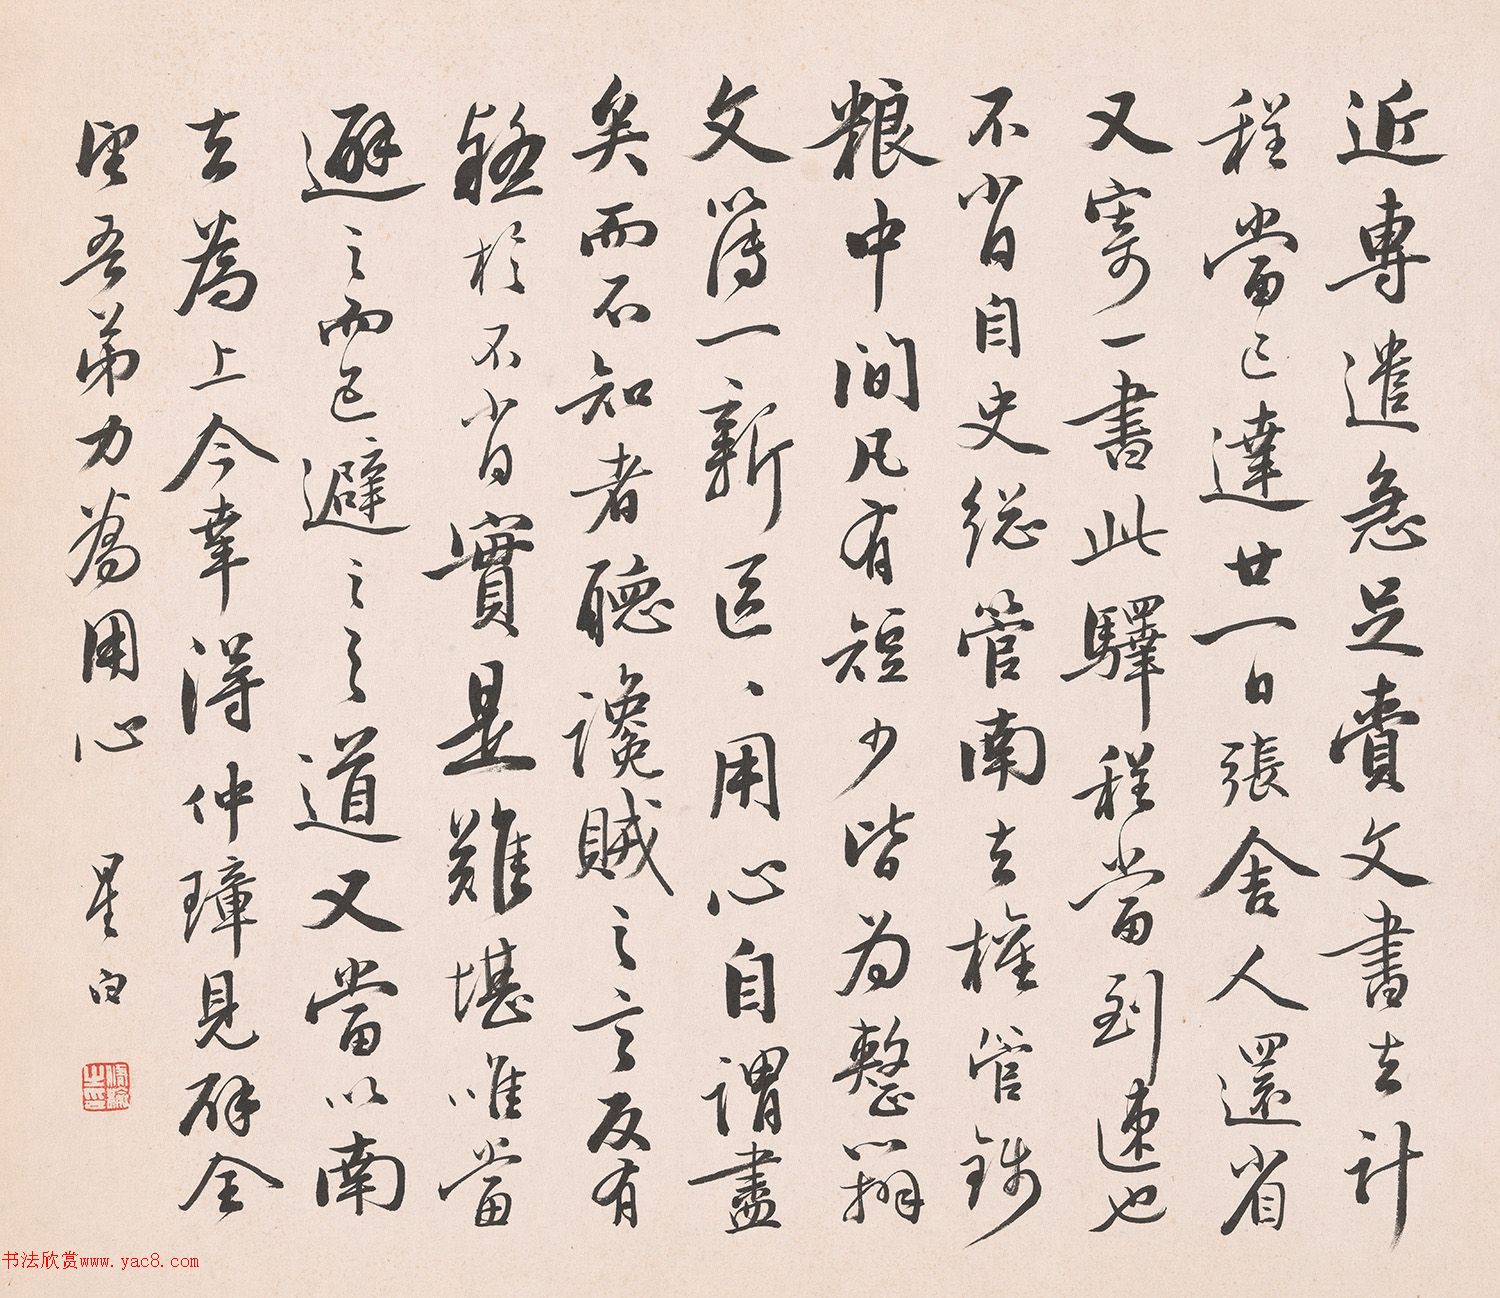 近專遣急足賫文書去計
程當已達廿一日張舍人還省
又寄一書此驛程當到速也
不肖自史総管南去權管錢
粮中間凡有短少皆为整辦
文簿一新區、用心自謂盡
矣而不知者聽讒賊之言反有
疑於不肖實是難堪唯當
避之而已避之之道又當以南
去為上今幸得仲璋見辟全
望吾弟力為用心 星白
书法欣赏www.yac8.com